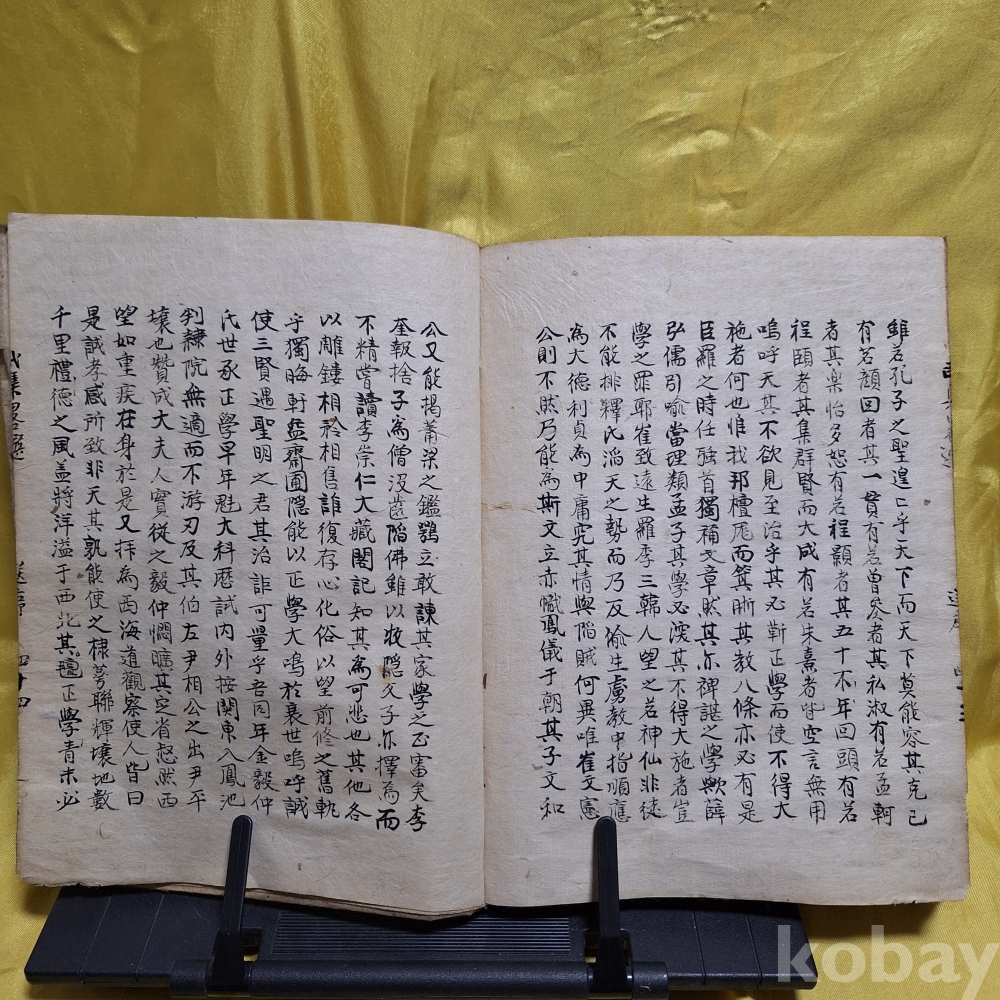 雖若孔子之聖遑遑乎天下而天下莫能容其克己
有若顏回者其一貫有若曾參者其私淑有若孟軻
者其樂怡多恕有若程顥者其五十不年回頭有若
程頤者其集群賢而大成有若朱熹者皆空言無用
嗚呼天其不欲見至治乎其必靳正學而使不得大
施者何也惟我邦檀厖而箕晣其教八條亦必有是
臣羅之時任強首獨補文章然其亦裨諶之學歟薛
弘儒引喻當理類孟子其學必淺其不得大施者豈
學之罪耶崔致遠生羅季三韓人望之若神仙非徒
不能排釋氏滔天之勢而乃反喻生虜教中指順應
為大德利貞為中庸究其情與陷賊何異唯崔文憲
公則不然乃能為斯文立赤幟鳳儀于朝其子文和
公又能揭蕭梁之鑑鶚立敢諫其家學之正審矣李
奎報捨子為僧沒齒陷佛雖以牧隱父子亦擇為而
不精嘗讀李崇仁大藏閣記知其為可悲也其他各
以雕鏤相矜相售誰復存心化俗以望前修之舊軌
乎獨晦軒益齋圃隱能以正學大鳴於衰世嗚呼誠
使三賢遇聖明之君其治詎可量乎吾同年金毅仲
氏世承正學早年魁大科歷試內外按關東入鳳池
判隸院無適而不游刃及其伯左尹相公之出尹平
壤也贊成大夫人實從之毅仲憫曠其定省愁然西
望如重疾在身於是又拜為西海道觀察使人皆曰
是誠孝感所致非天其孰能使之棣萼聯輝壤地數
千里禮德之風盖將洋溢于西北其環正學青未必